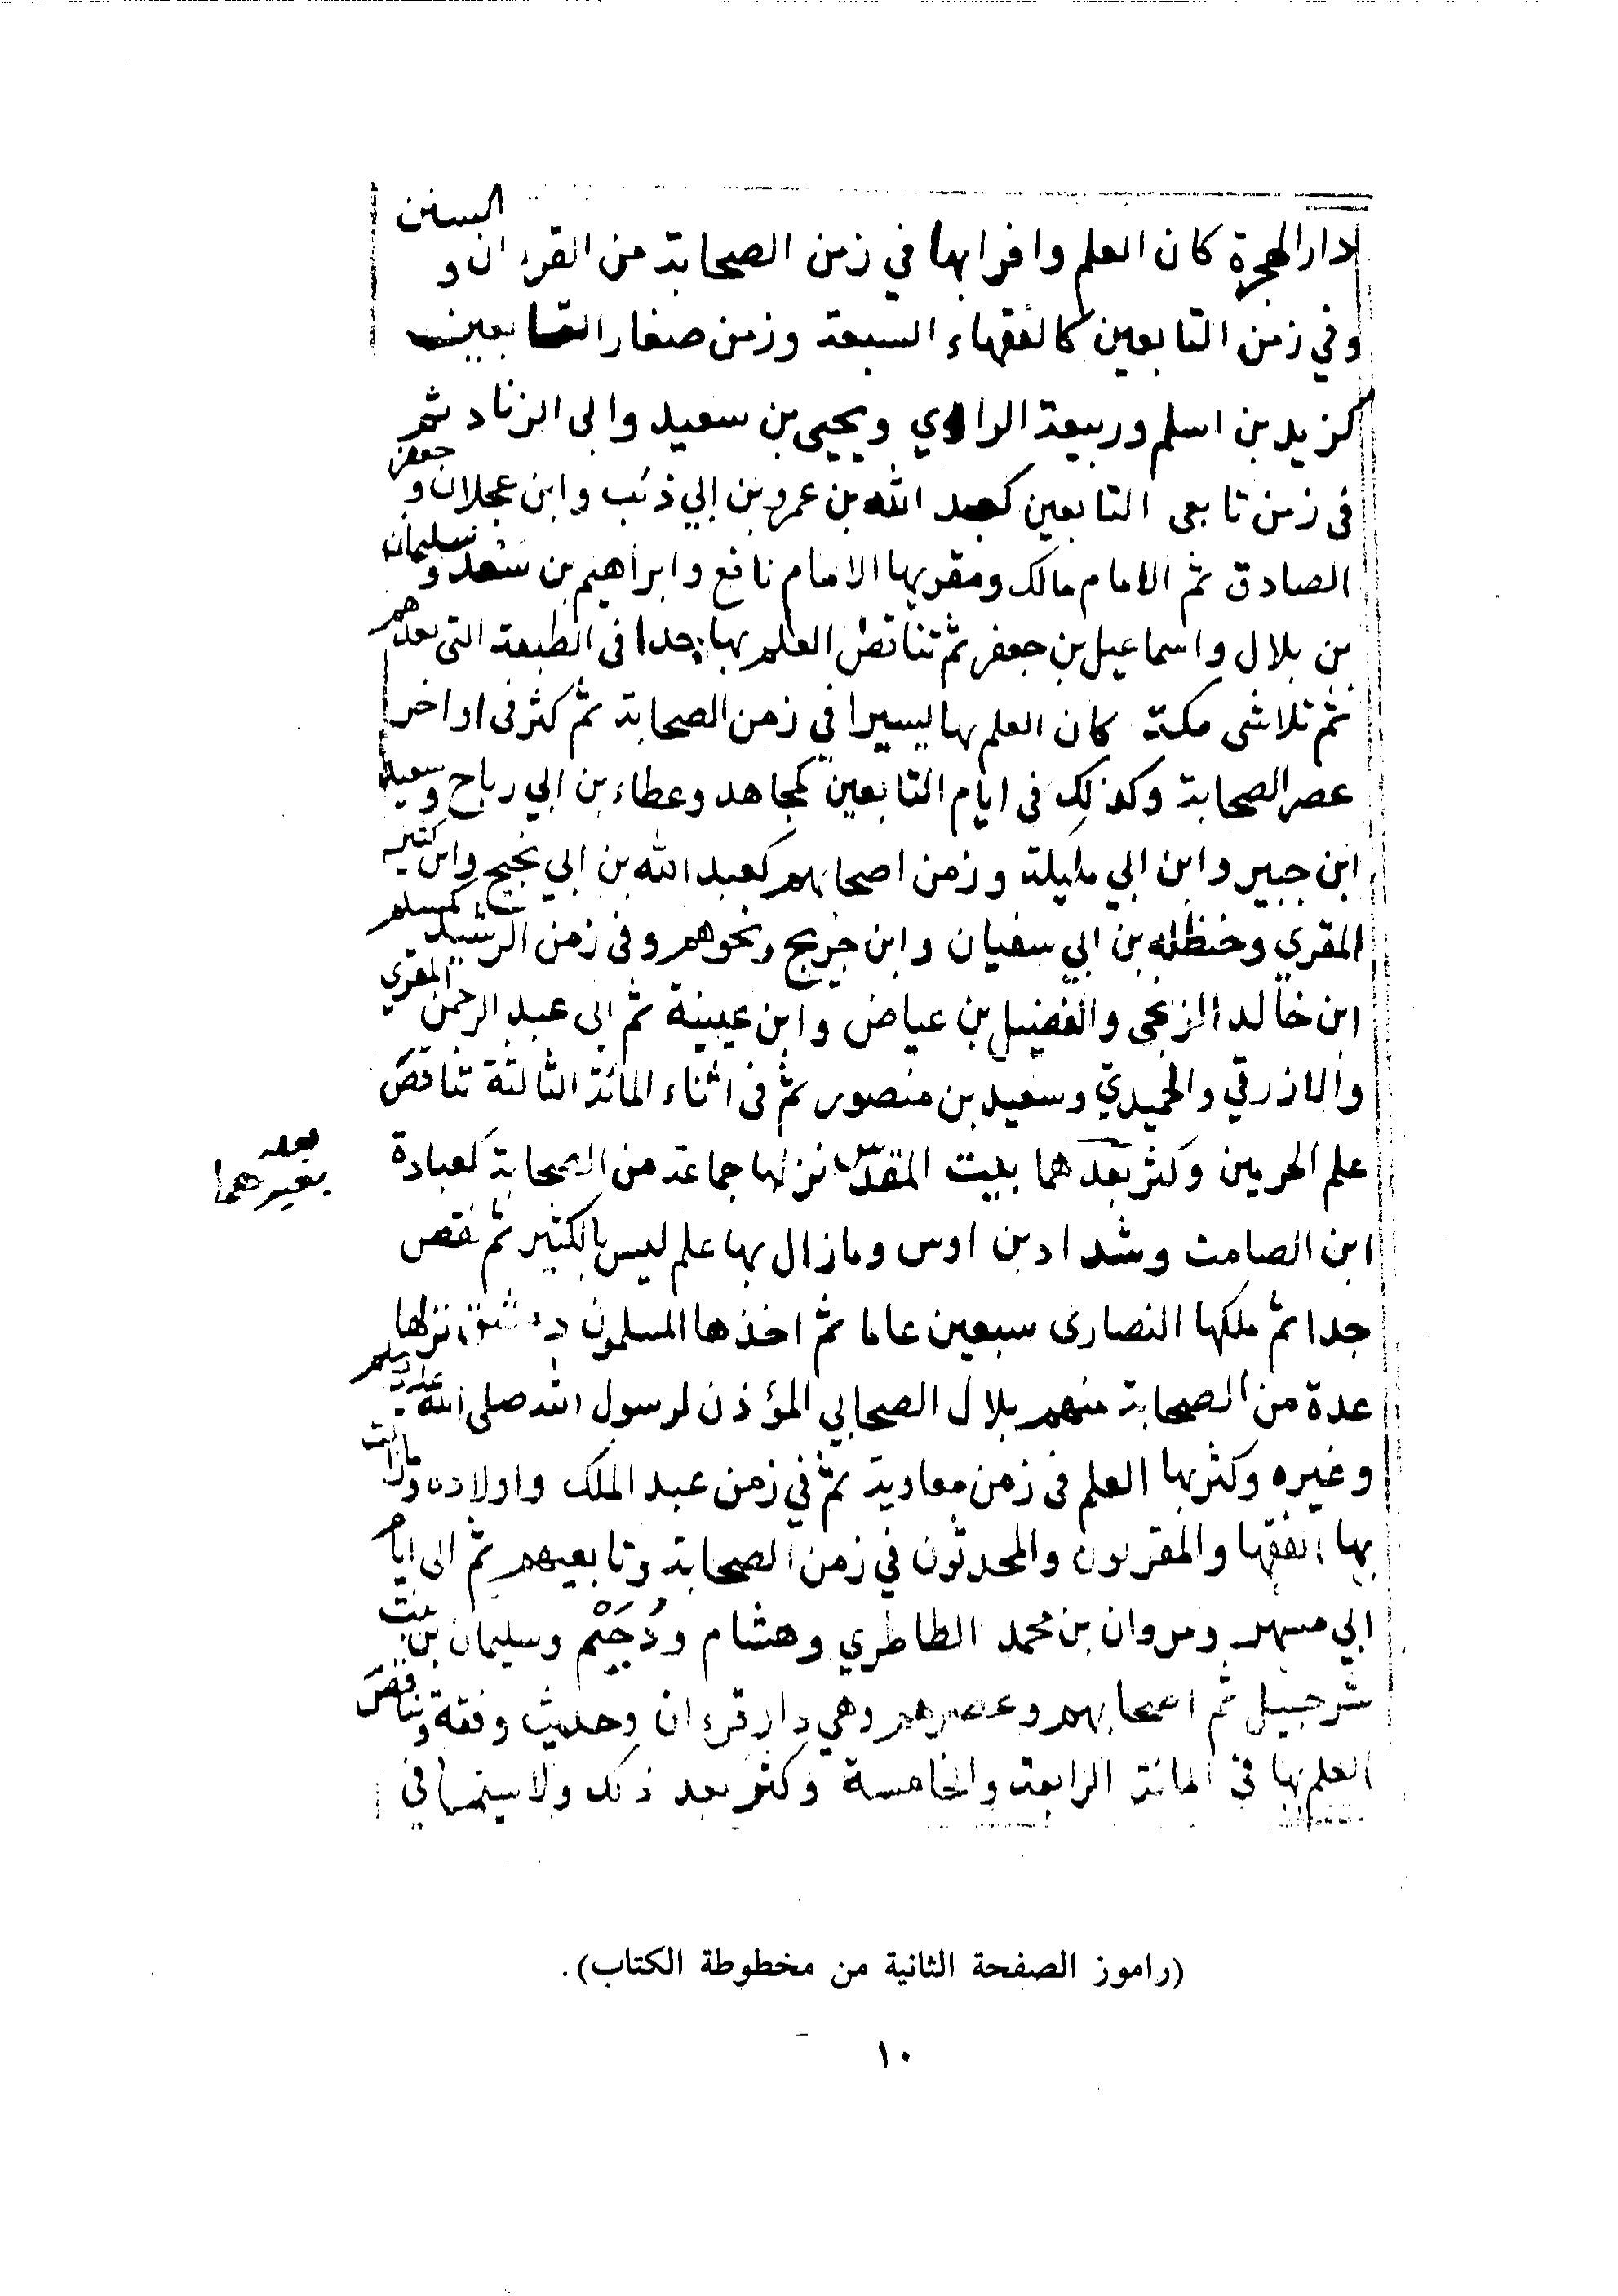 دار الهجرة كان العلم وافرا بها في زمن الصحابة من القرءان و السنن
وفي زمن التابعين كالفقهاء السبعة وزمن صغار التابعين
كزيد بن اسلم وربيعة الراوي ويحيى بن سعيد وابى الزناد ثم
فى زمن تابعى التابعين كعبد الله بن عمر وبن ابي ذئب وابن عجلان و جعفر
الصادق ثم الامام مالك ومقريها الامام نافع وابراهيم بن سعد و سليمان
بن بلال واسماعيل بن جعفر ثم تناقص العلم بها جدا فى الطبعة التى بعدهم
ثم تلاشى مكة كان العلم بها يسيرا في زمن الصحابة ثم كثر فى اواخر
عصر الصحابة وكذلك فى ايام التابعين كمجاهد وعطاء بن ابي رباح وسعيد
ابن جبير وابن ابي مليلة وزمن اصحابهم كعبد الله بن ابي نجيح وابن كثير
المقري وحنظله بن ابي سفيان وابن جريج ونحوهم وفى زمن الرشيد كمسلم
ابن خالد الزنجى والفضيل بن عياض وابن عيينة ثم ابى عبد الرحمن المقري
والازرقي والحميدي وسعيد بن منصور ثم فى اثناء المائة الثالثة تناقص
علم الحرمين وكثر بعدهما بيت المقدس نزلها جماعة من الصحابة كعبادة
بغيرهما
ابن الصامت وشداد بن اوس وما زال بها علم ليس بالكثير ثم نقص
جدا ثم ملكها النصارى سبعين عاما ثم اخذها المسلمون دمشق نزلها
عدة من الصحابة منهم بلال الصحابي المؤذن لرسول الله صلى الله عليه وسلم
وغيره وكثر بها العلم فى زمن معاوية ثم في زمن عبد الملك واولاده وما زالت
بها الفقها والمقريون والمحدثون في زمن الصحابة وتابعيهم ثم الى ايام
ابي مسهر ومروان بن محمد الطاطري وهشام ودُحَيْم وسليمان بن بنت
شرحبيل ثم اصحابهم وعصرهم وهي دار قرءان وحديث وفقه وتناقص
العلم بها فى المائة الرابعة والخامسة وكثر بعد ذلك ولا سيما في
(راموز الصفحة الثانية من مخطوطة الكتاب).
١٠